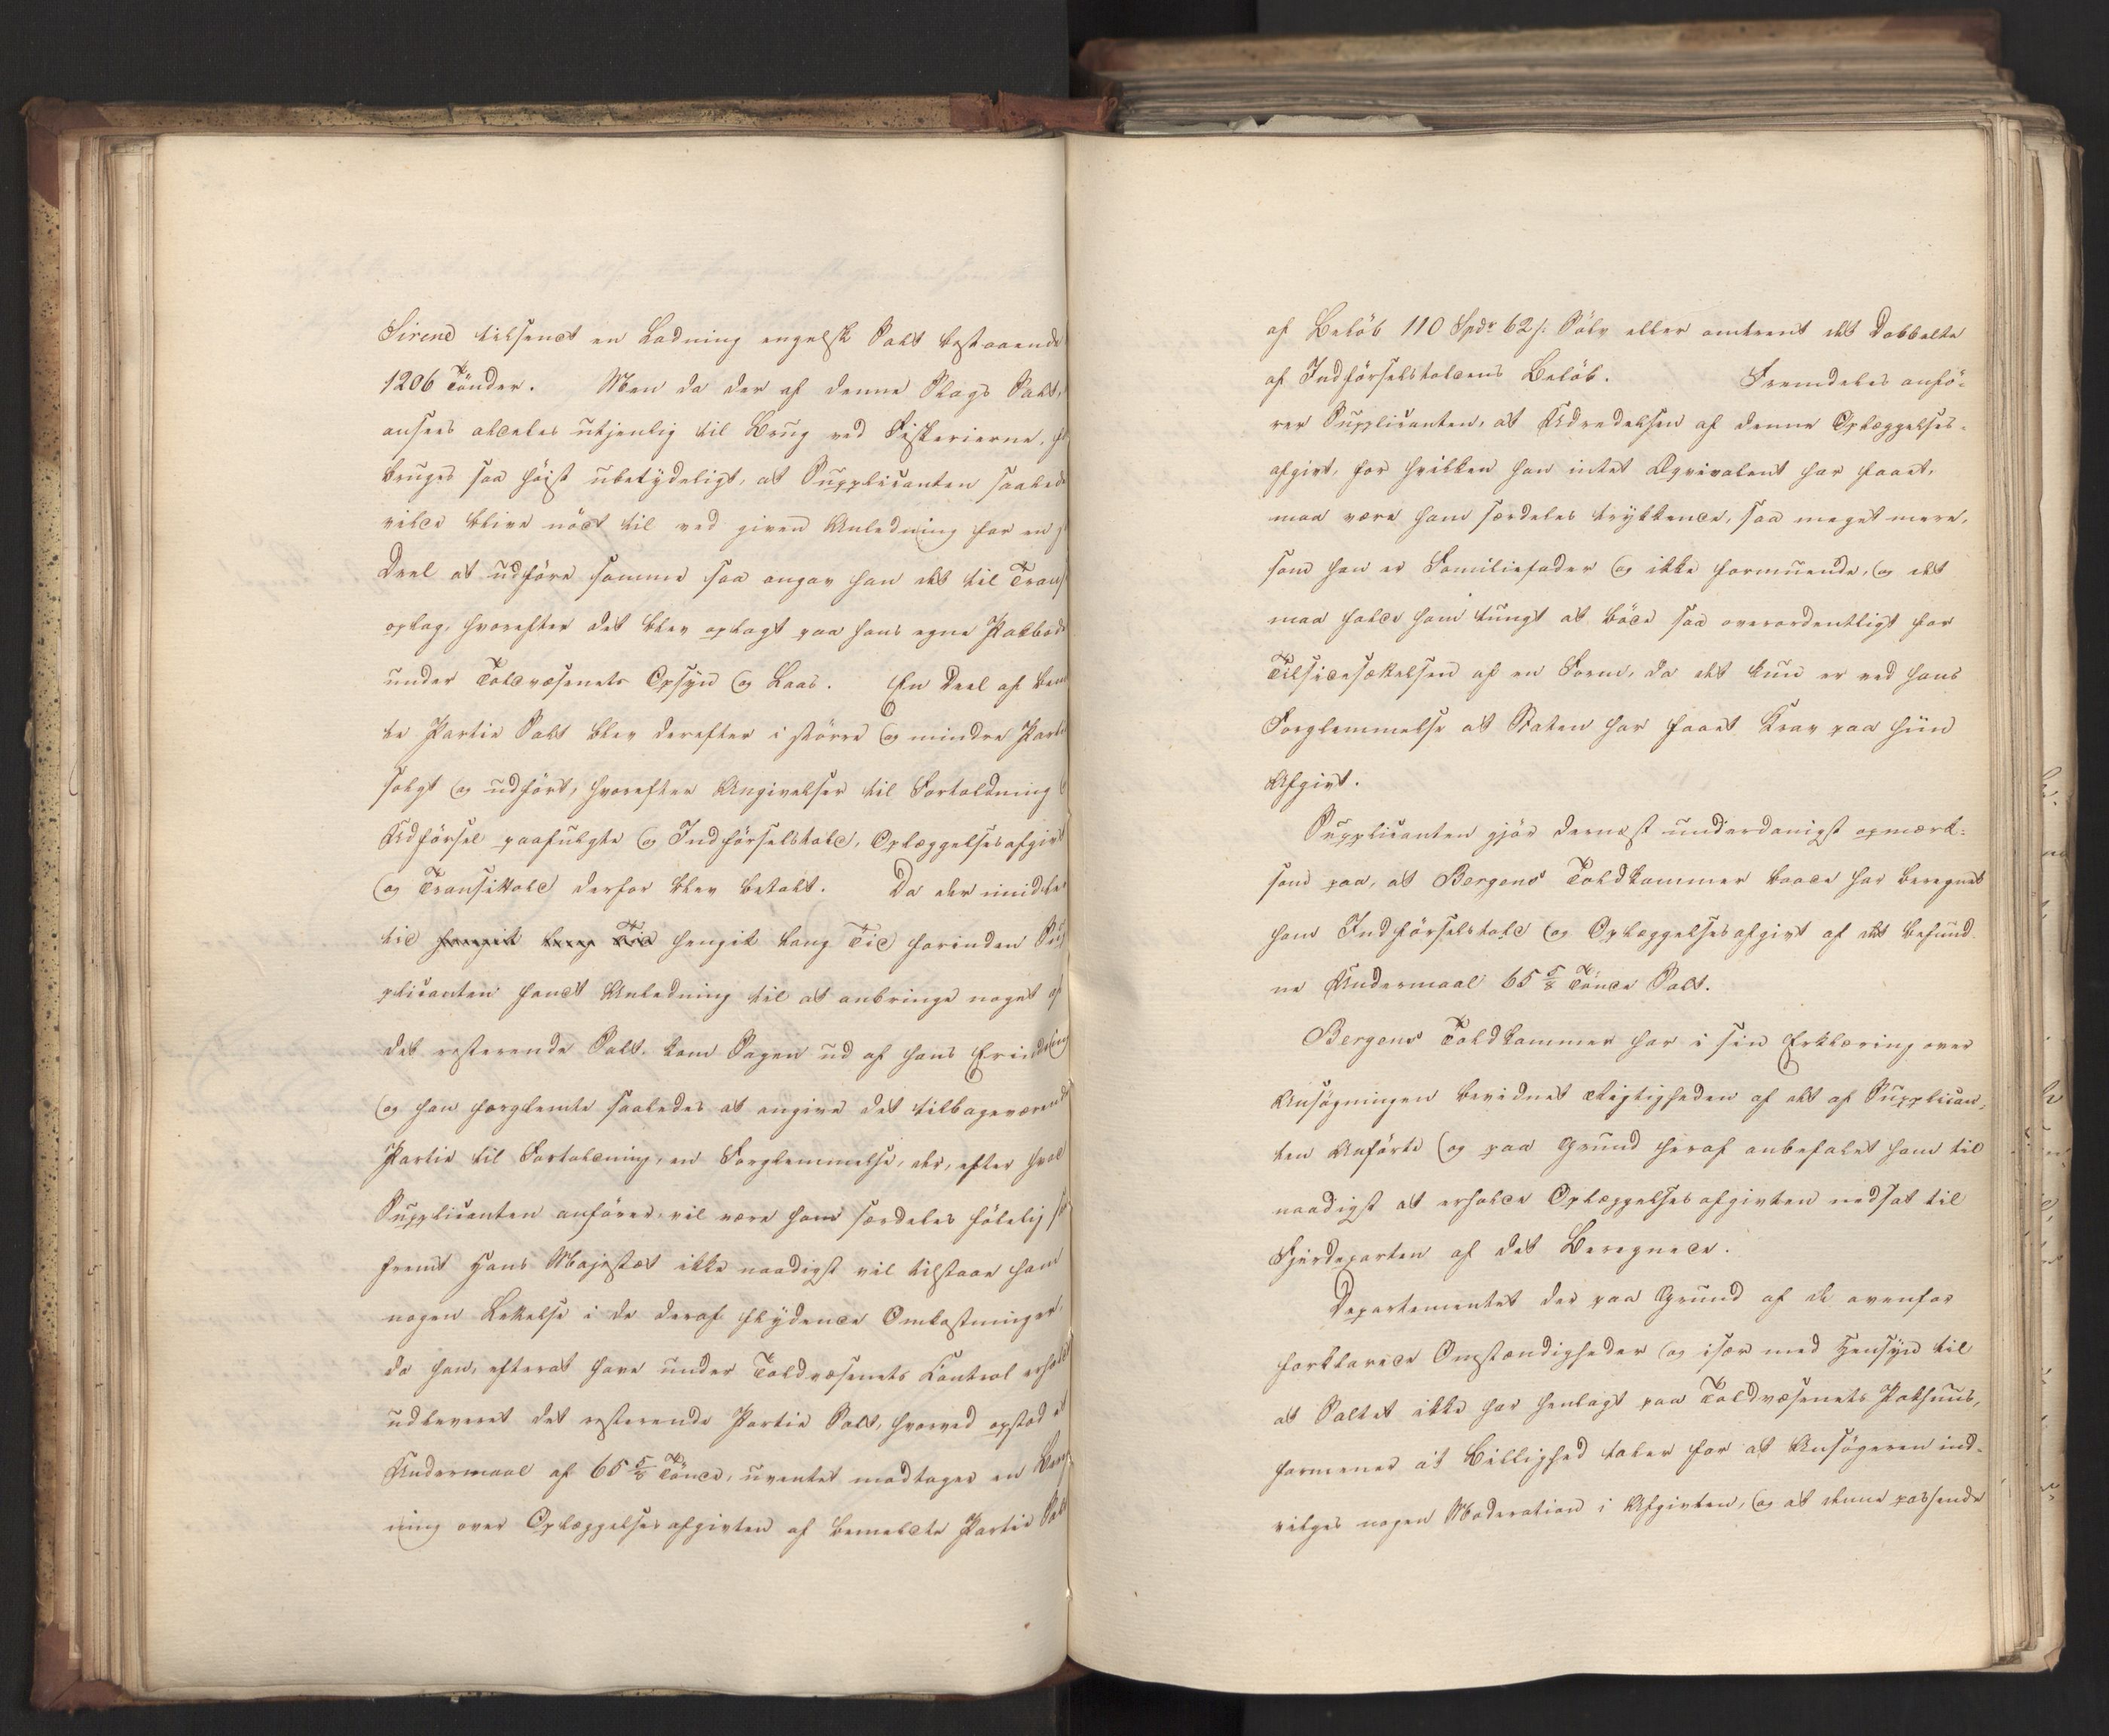 Sirene tilsendt en Ladning engelsk Salt bestaaende
1206 Tönder. Men da der af denne Slags Salt,
ansees aldeles utjenlig til Brug ved Fiskerierne,
bruges saa höist ubetydeligt, at Supplicanten saaled
vilde blive nödt til ved given Anledning for en
Deel at udföre samme saa angav han det til Trans
oplag, hvorefter det blev oplagt paa hans egne Pakbod
under Toldvæsenets Opsyn og Laas. En Deel af bem
te Partie Salt blev derefter i större og mindre Parti
solgt og udfört, hvorefter Angivelser til Fortoldning
Udförsel paafulgte og Indförselstold, Oplæggelsesafgivt
og Transittold derfor blev betalt. Da der imidler
tid hengik lang Tid hengik lang Tid forinden Sup
plicanten fandt Anledning til at anbringe noget af
det resterende Salt, kom Sagen ud af hans Erindring
og han forglemte saaledes at angive det tilbageværende
Partie til Fortoldning, en Forglemmelse, der, efter hvad
Supplicanten anförer, vil være ham særdeles fölelig
fremt Hans Majestæt ikke naadigst vil tilstaae ham
nogen Lettelse i de deraf flydende Omkostninger,
da han, efterat have under Toldvæsenets Control erholdt
udleveret det resterende Partie Salt, hvorved opstod et
Undermaal af 65 5/8 Tönde, uventet modtager en Bereg
ning over Oplæggelsesafgivten af bemeldte Partie Salt
af Belöb 110 Spdr 62 s. Sölv eller omtrent det Dobbelte
af Indförselstoldens Belöb. Fremdeles anfö-
rer Supplicanten, at Udredelsen af denne Oplæggelses-
afgivt, for hvilken han intet Æqvivalent har faaet,
maa være ham særdeles trykkende, saa meget mere,
som han er Familiefader og ikke formuende, og det
maa falde ham tungt at böde saa overordentligt for
Tilsidesættelsen af en Form, da det kun er ved hans
Forglemmelse at Staten har faaet Krav paa hiin
Afgivt.
Supplicanten gjör dernæst underdanigst opmærk-
som paa, at Bergens Toldkammer baade har beregnet
ham Indförselstold og Oplæggelsesafgivt af det befund
ne Undermaal 65 5/8 Tönde Salt.
Bergens Toldkammer har i sin Erklæring over
Ansögningen bevidnet Rigtigheden af det af Supplican-
ten Anförte og paa Grund heraf anbefalet ham til
naadigst at erholde Oplæggelsesafgivten nedsat til
Fjerdeparten af det Beregnede.
Departementet der paa Grund af de ovenfor
forklarede Omstændigheder og især med Hensyn til
at Saltet ikke har henlagt paa Toldvæsenets Pakhuus,
formener at Billighed taler for at Ansögeren ind-
vilges nogen Moderation i Afgivten, og at denne passende